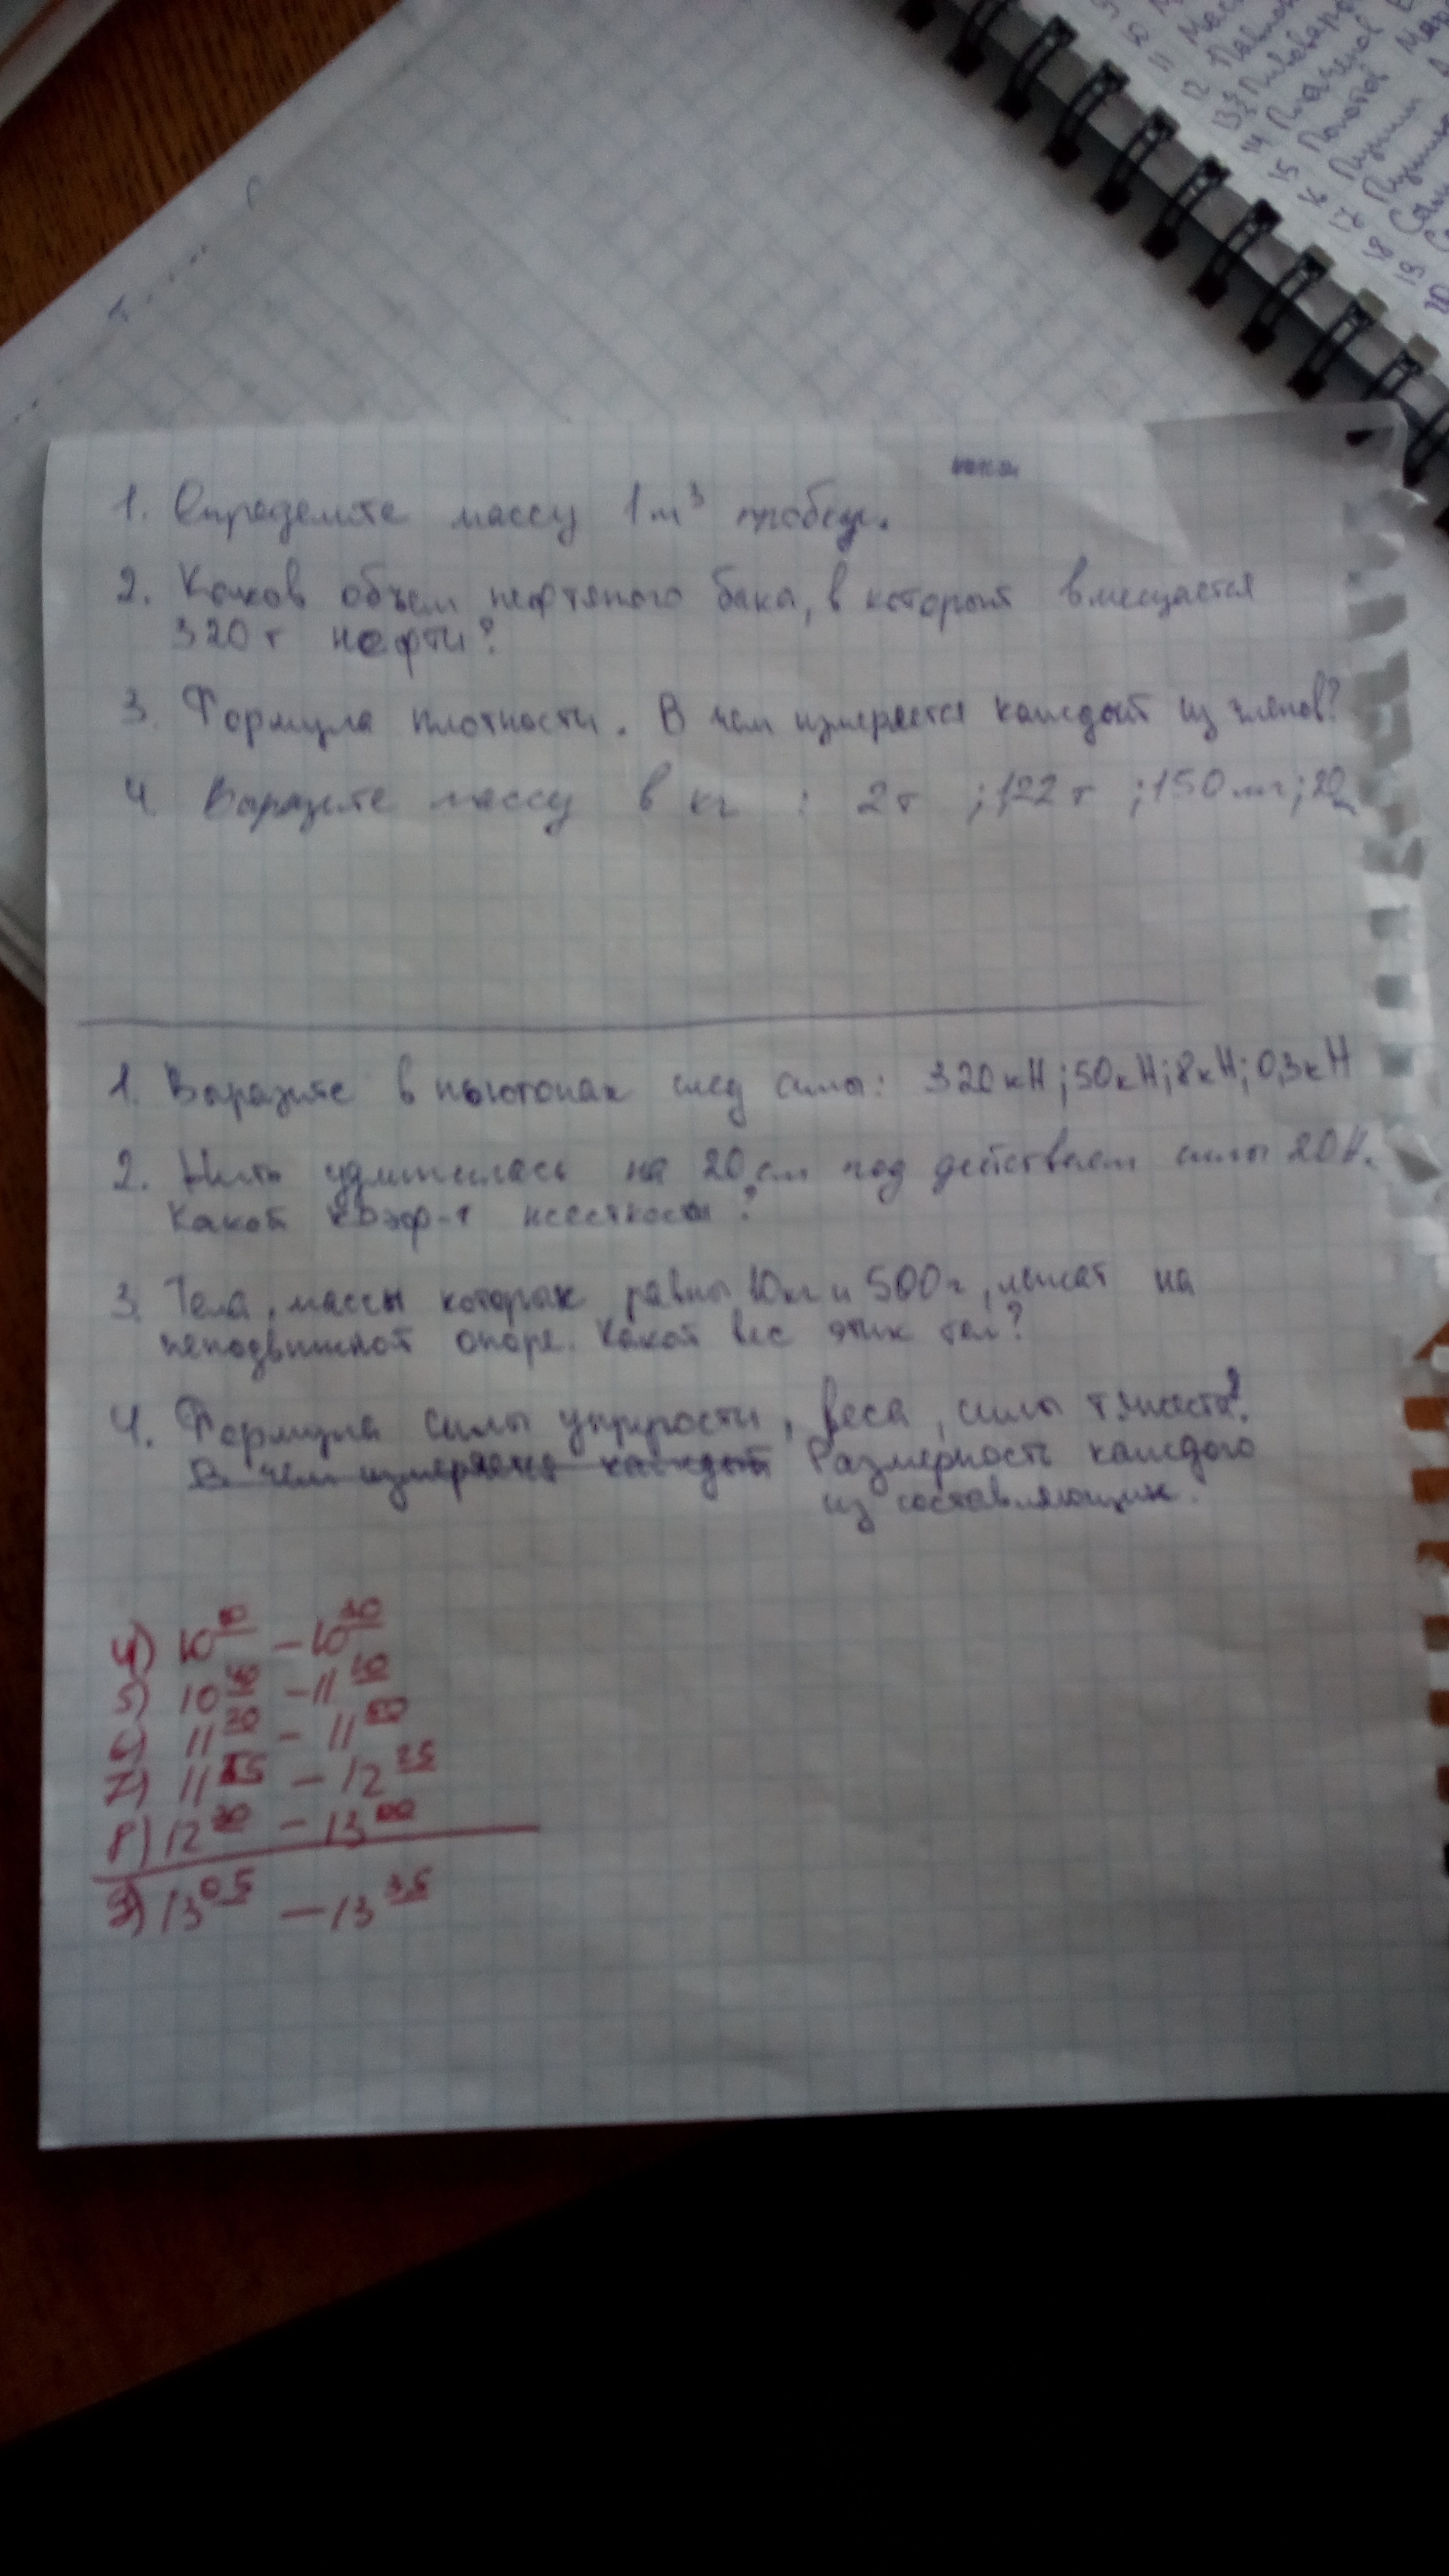 1. Определите массу 1 м³ пробки.
2. Каков объем нефтяного бака, в который вмещается
320 т нефти?
3. Формула плотности. В чем измеряется каждый из членов?
4. Выразите массу в кг : 2 т ; 122 т ; 150 мг; 20
1. Выразите в ньютонах след силы: 320кН; 50кН; 8кН; 0,3кН
2. Нить удлинилась на 20 см под действием силы 20Н.
Какой коэф-т жесткости?
3. Тела, массы которых равны 10кг и 500г, лежат на
неподвижной опоре. Какой вес этих тел?
4. Формула силы упругости, веса, силы тяжести.
В чем измеряется каждый Размерность каждого
из составляющих.
4) 10 – 10 30
5) 10 40 – 11 10
6) 11 20 – 11 50
7) 11 55 – 12 25
8) 12 30 – 13 00
9) 13 05 – 13 35
11
12
14
15
16
17
18
19
20